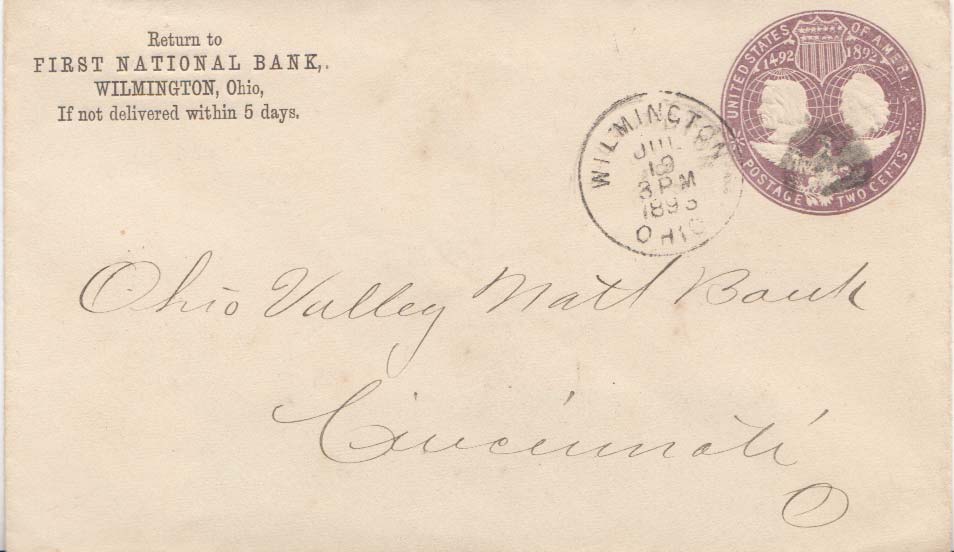 Return to
FIRST NATIONAL BANK,
WILMINGTON, Ohio,
If not delivered within 5 days.
UNITED STATES OF AMERICA
1492 1892
POSTAGE TWO CENTS
WILMINGTON
JUL
19
3 PM
1893
OHIO
Ohio Valley Natl Bank
Cincinnati
O